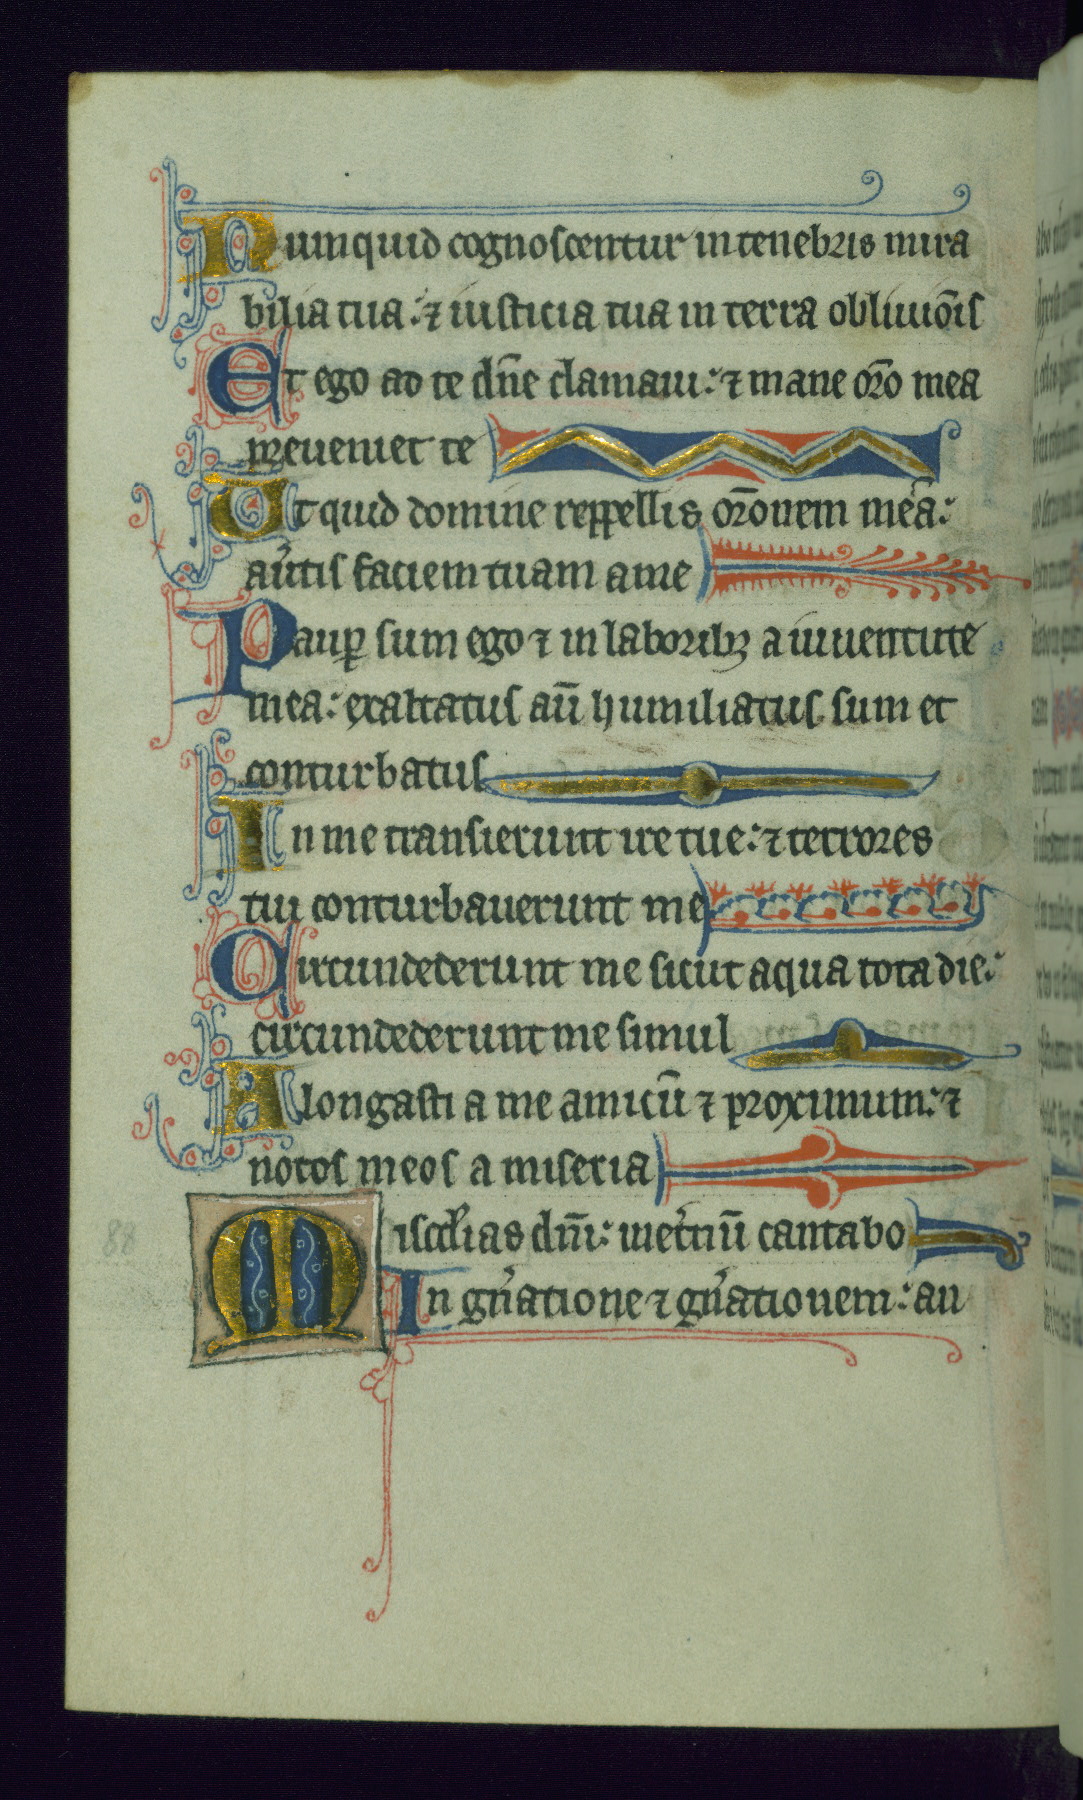 Numquid cognoscentur in tenebris mira
bilia tua: ⁊ iusticia tua in terra obliuiōis
Et ego ad te dn̄e clamaui: ⁊ mane or̄o mea
preueniet te
Ut quid domine reppellis or̄onem meā:
au̾tis faciem tuam a me
Paup̱ sum ego ⁊ in laboribꝫ a iuuentute
mea: exaltatus aū humiliatus sum et
conturbatus
In me transierunt ire tue: ⁊ terrores
tui conturbauerunt me
Circundederunt me sicut aqua tota die:
circundederunt me simul
Alongasti a me amicū ⁊ proximum: ⁊
notos meos a miseria
88 Misc̄dias dn̄i: inet̾nū cantabo
In gn̾atione ⁊ gn̾ationem: an